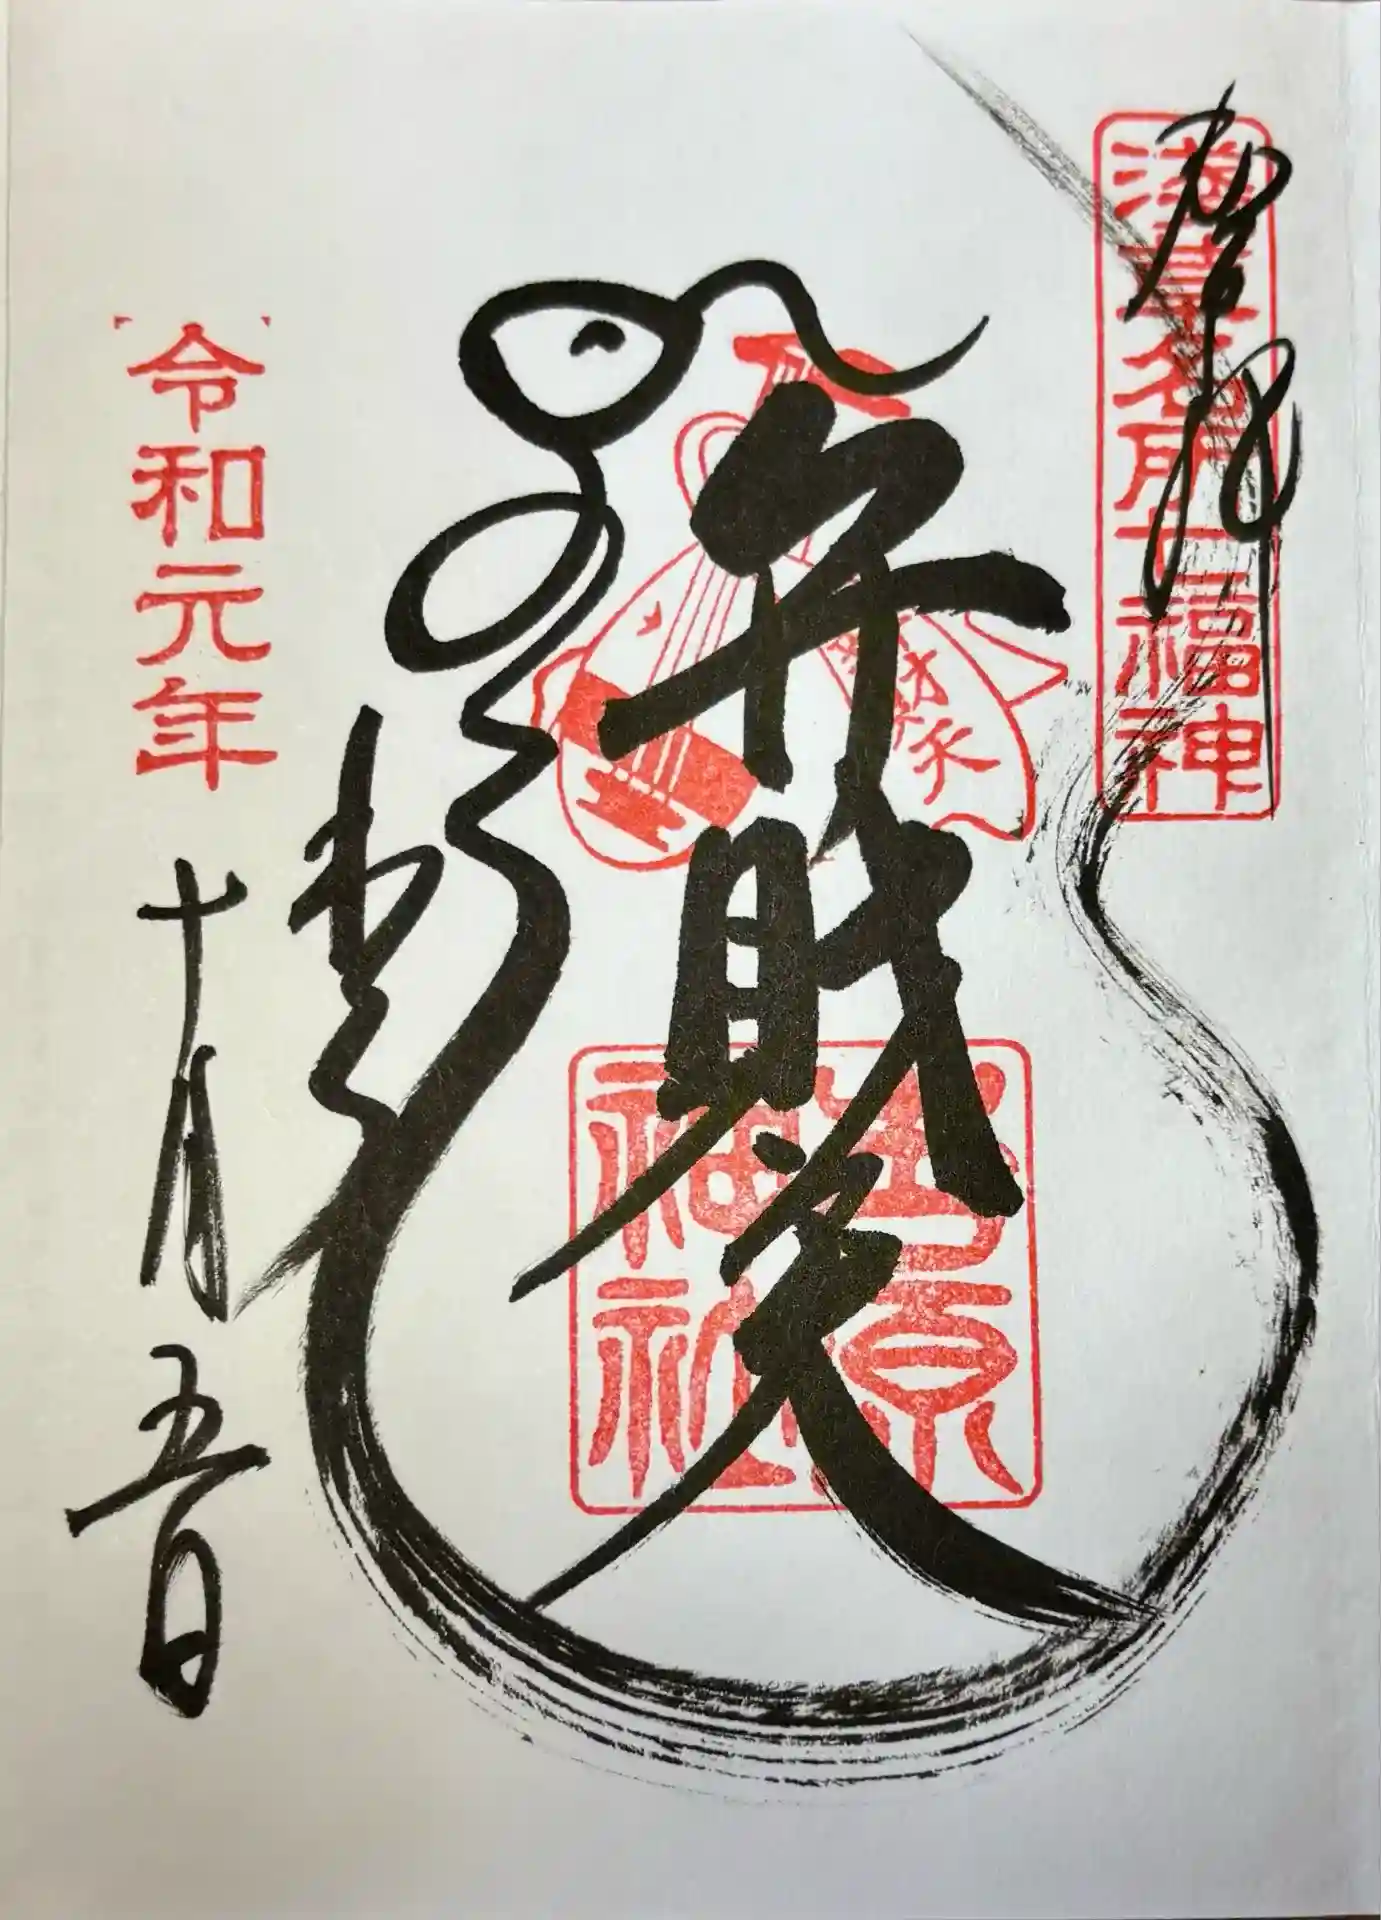 奉拝
浅草名所七福神
弁財天
吉原神社
令和元年
十月五日